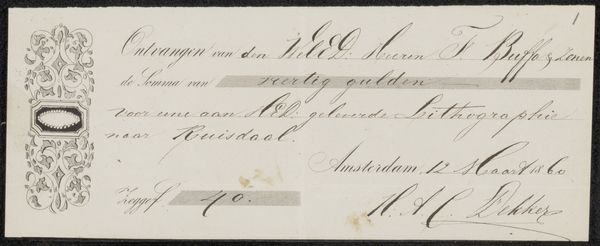 1
Ontvangen van den WelEd: Heeren F. Buffa & Zonen
de Somma van veertig gulden
voor une aan HED: geleverde Lithographie
naar Ruisdaal.
Amsterdam, 12 Maart 1860
Zegge f 40.
H. A. C. Dekker